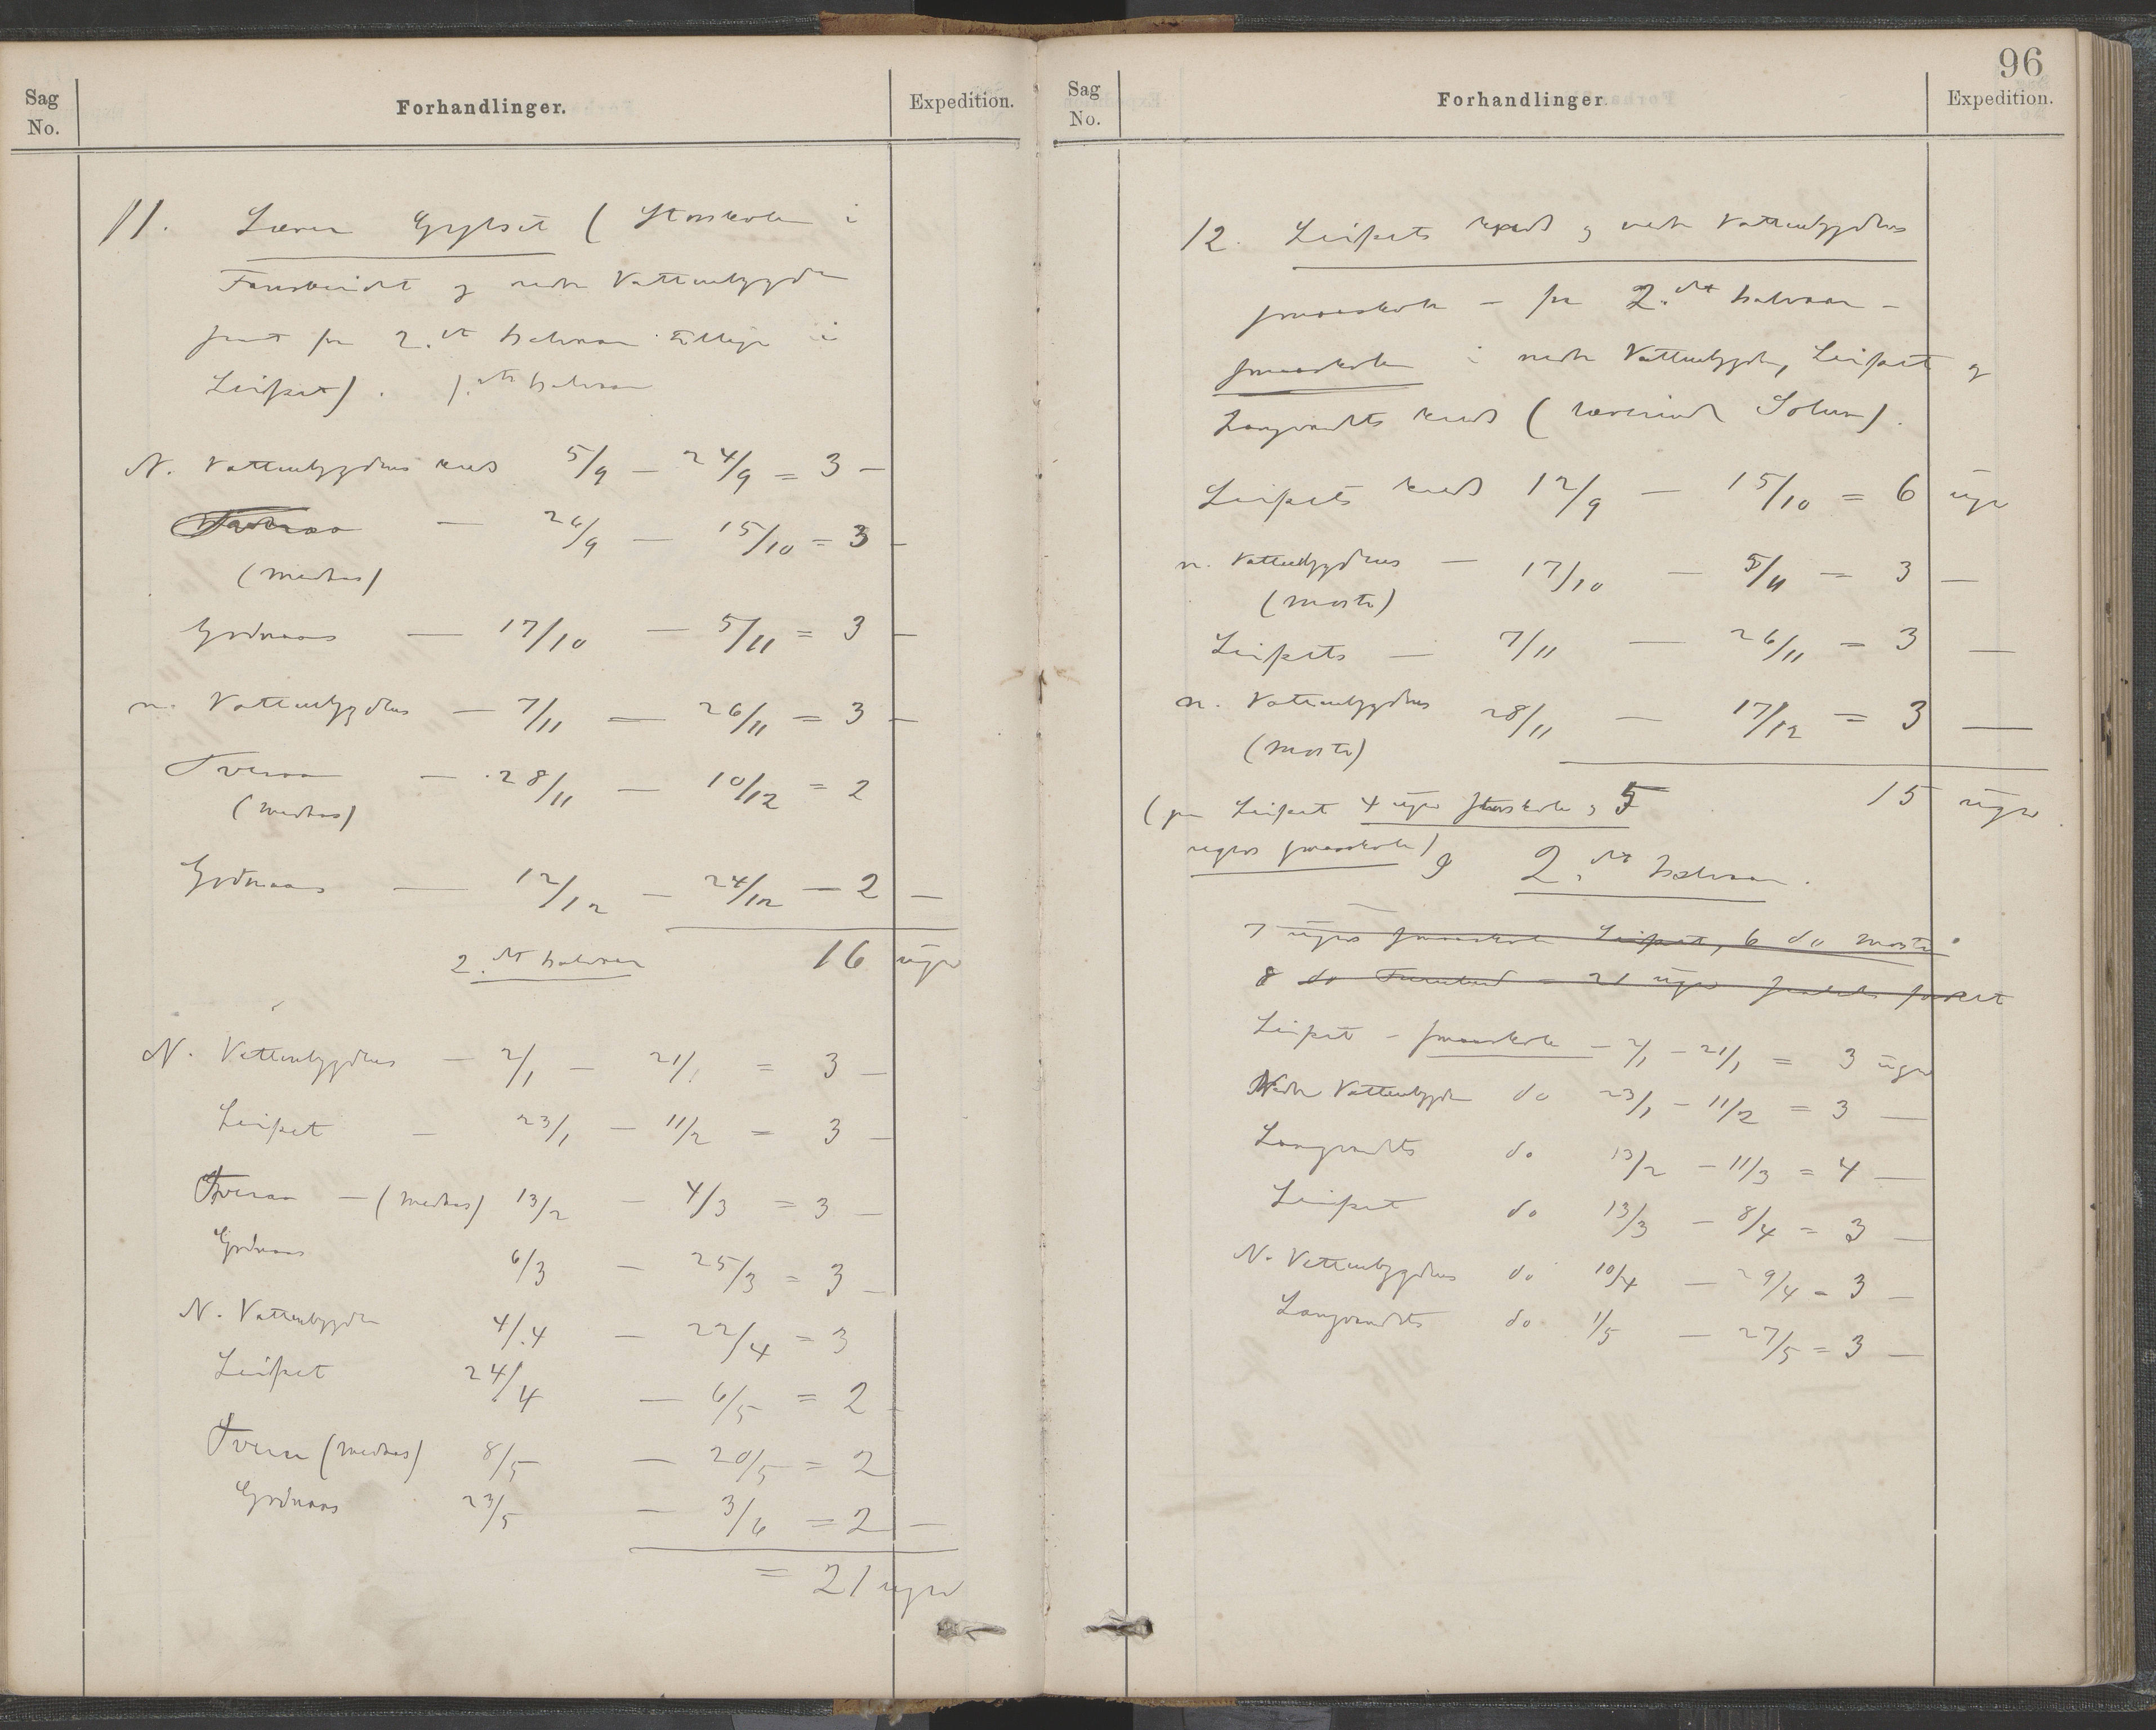 Sag
No.
Forhandlinger.
Expedition.
11. Lærer Gylset (Storskolen i
og nedre Vattenbygden
samt for 2. det halvaar tillige i
Leifset). 1. ste halvaar
N. Vattenbygdens kreds 5/9 – 24/9 = 3 –
– 26/9 – 15/10 = 3 –
(Mednes)
Godnaas – 17/10 – 5/11 = 3 –
n. Vattenbygdens – 7/11 – 26/11 = 3 –
Tveraa – 28/11 – 10/12 = 2
(Mednes)
Godnaas – 12/12 – 24/12 – 2 –
16 uger
2. det halvaar
N. Vattenbygdens – 2/1 – 21/1 = 3 –
Leifset – 23/1 – 11/2 = 3 –
Tveraa – (Mednes) 13/2 – 4/3 = 3 –
Godnaas 6/3 – 25/3 = 3 –
N. Vattenbygden 4/4 – 22/4 = 3
Leifset 24/4 – 6/5 = 2 –
Tveraa (Mednes) 8/5 – 20/5 = 2
Godnaas 23/5 – 3/6 = 2 –
= 21 uger
96
Sag
No.
Forhandlinger
Expedition.
12. Leifsets kreds og nedre Vattenbygdens
smaaskole – for 2. det halvaar –
smaaskolen i nedre Vattenbygden, Leifset og
Langvandets kreds (lærerinde Solum).
Leifsets kreds 12/9 – 15/10 = 6 uger
n. Vattenbygdens – 17/10 – 5/11 – 3 –
(Moste)
Leifsets – 7/11 – 26/11 = 3 –
n. Vattenbygdens 28/11 – 17/12 = 3 –
(Moste)
15 uger
(for Leifset 4 uger storskole og 5
ugers smaaskole)
2. det halvaar.
7 ugers smaaskole Leifset, 6 do Moste
8 do – 21 uger
Leifset – smaaskole – 2/1 – 21/1 = 3 uger
Nedre Vattenbygden do 23/1 – 11/2 = 3 –
Langvandets do 13/2 – 11/3 = 4 –
Leifset do 13/3 – 8/4 = 3 –
N. Vattenbygdens do 10/4 – 29/4 = 3 –
Langvandets do 1/5 – 27/5 = 3 –